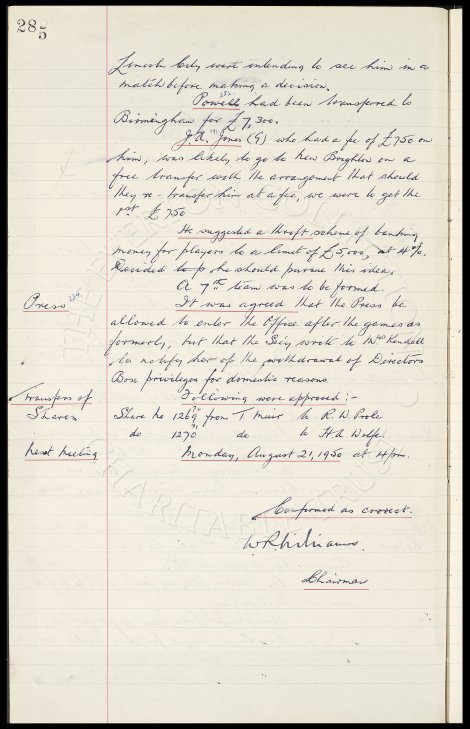 285
Lincoln City were intending to see him in a
match before making a decision.
Powell had been transferred to
Birmingham for £7,300.
J.A. Jones (G) who had a fee of £750 on
him, was likely to go to New Brighton on a
free transfer with the arrangement that should
they re-transfer him at a fee, we were to get the
1st £750
He suggested a thrift scheme of banking
money for players to a limit of £5,000, at 4%.
Decided he should pursue this idea.
A 7th team was to be formed.
Press
It was agreed that the Press be
allowed to enter the Office after the games as
formerly, but that the Secy wrote to Mrs Kendall
to notify her of the withdrawal of Directors
Box privileges for domestic reasons.
Transfers of Shares
Following were approved:-
Share No 1269 from T. Muir to R. W. Prole
do 1270 do to H. A. Wolfe
Next Meeting
Monday, August 21, 1950 at 4 pm.
Confirmed as correct.
W.R. Williams.
Chairman
THE EVERTON COLLECTION
CHARITABLE TRUST